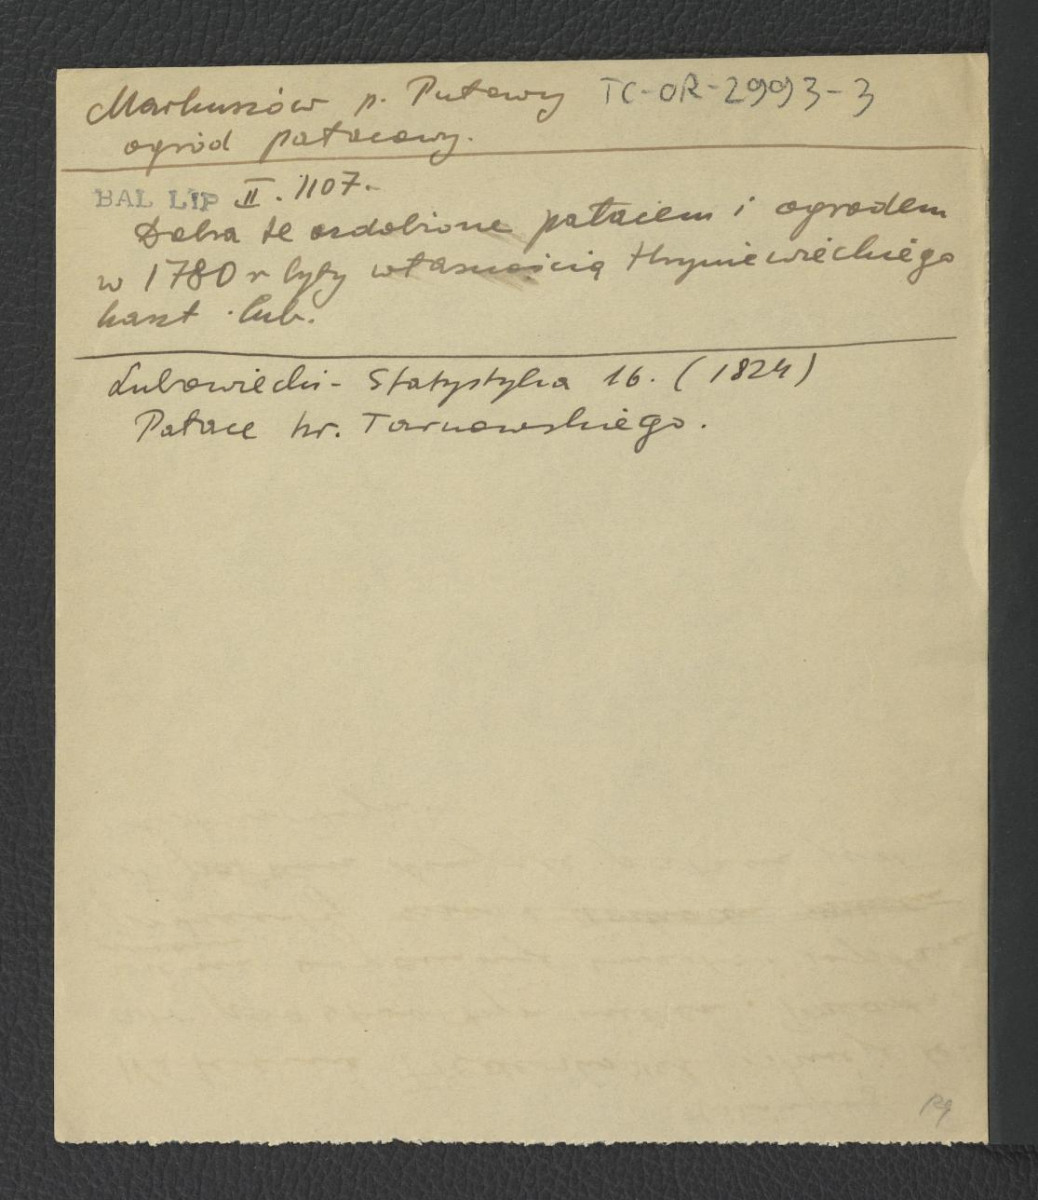 Markuszów p. Puławy TC-OR-2993-3
ogród pałacowy.
BAL LIP II. 1107.
Dobra te ozdobione pałacem i ogrodem
w 1780 r były własnością Hryniewieckiego
kaszt. lub.
Lubowiecki - Statystyka 16. (1824)
Pałace hr. Tarnowskiego.